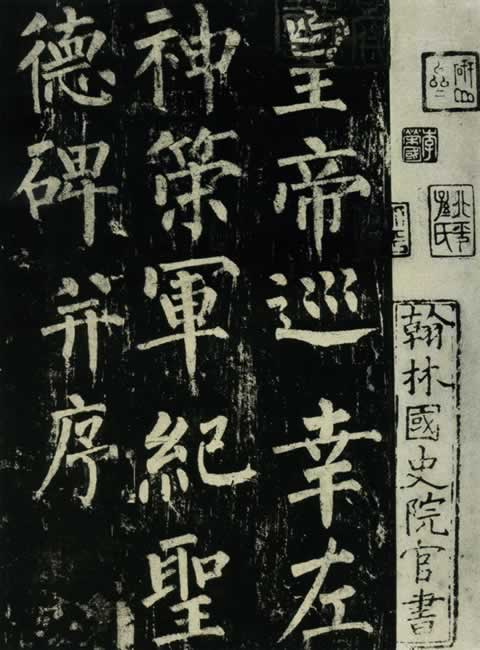 翰林國史院官書
北平
皇帝巡幸左
神策軍紀聖
德碑并序